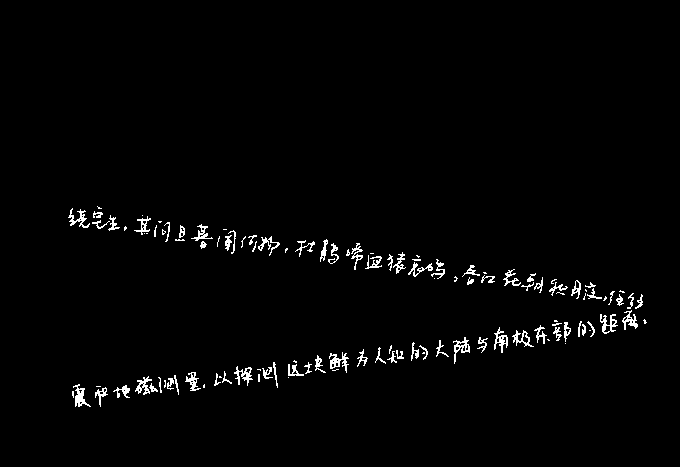 绕宅生，其间旦暮闻何物，杜鹃啼血猿哀鸣。春江花朝秋月夜，往往
震和地磁测量，以探测这块鲜为人知的大陆与南极东部的距离。